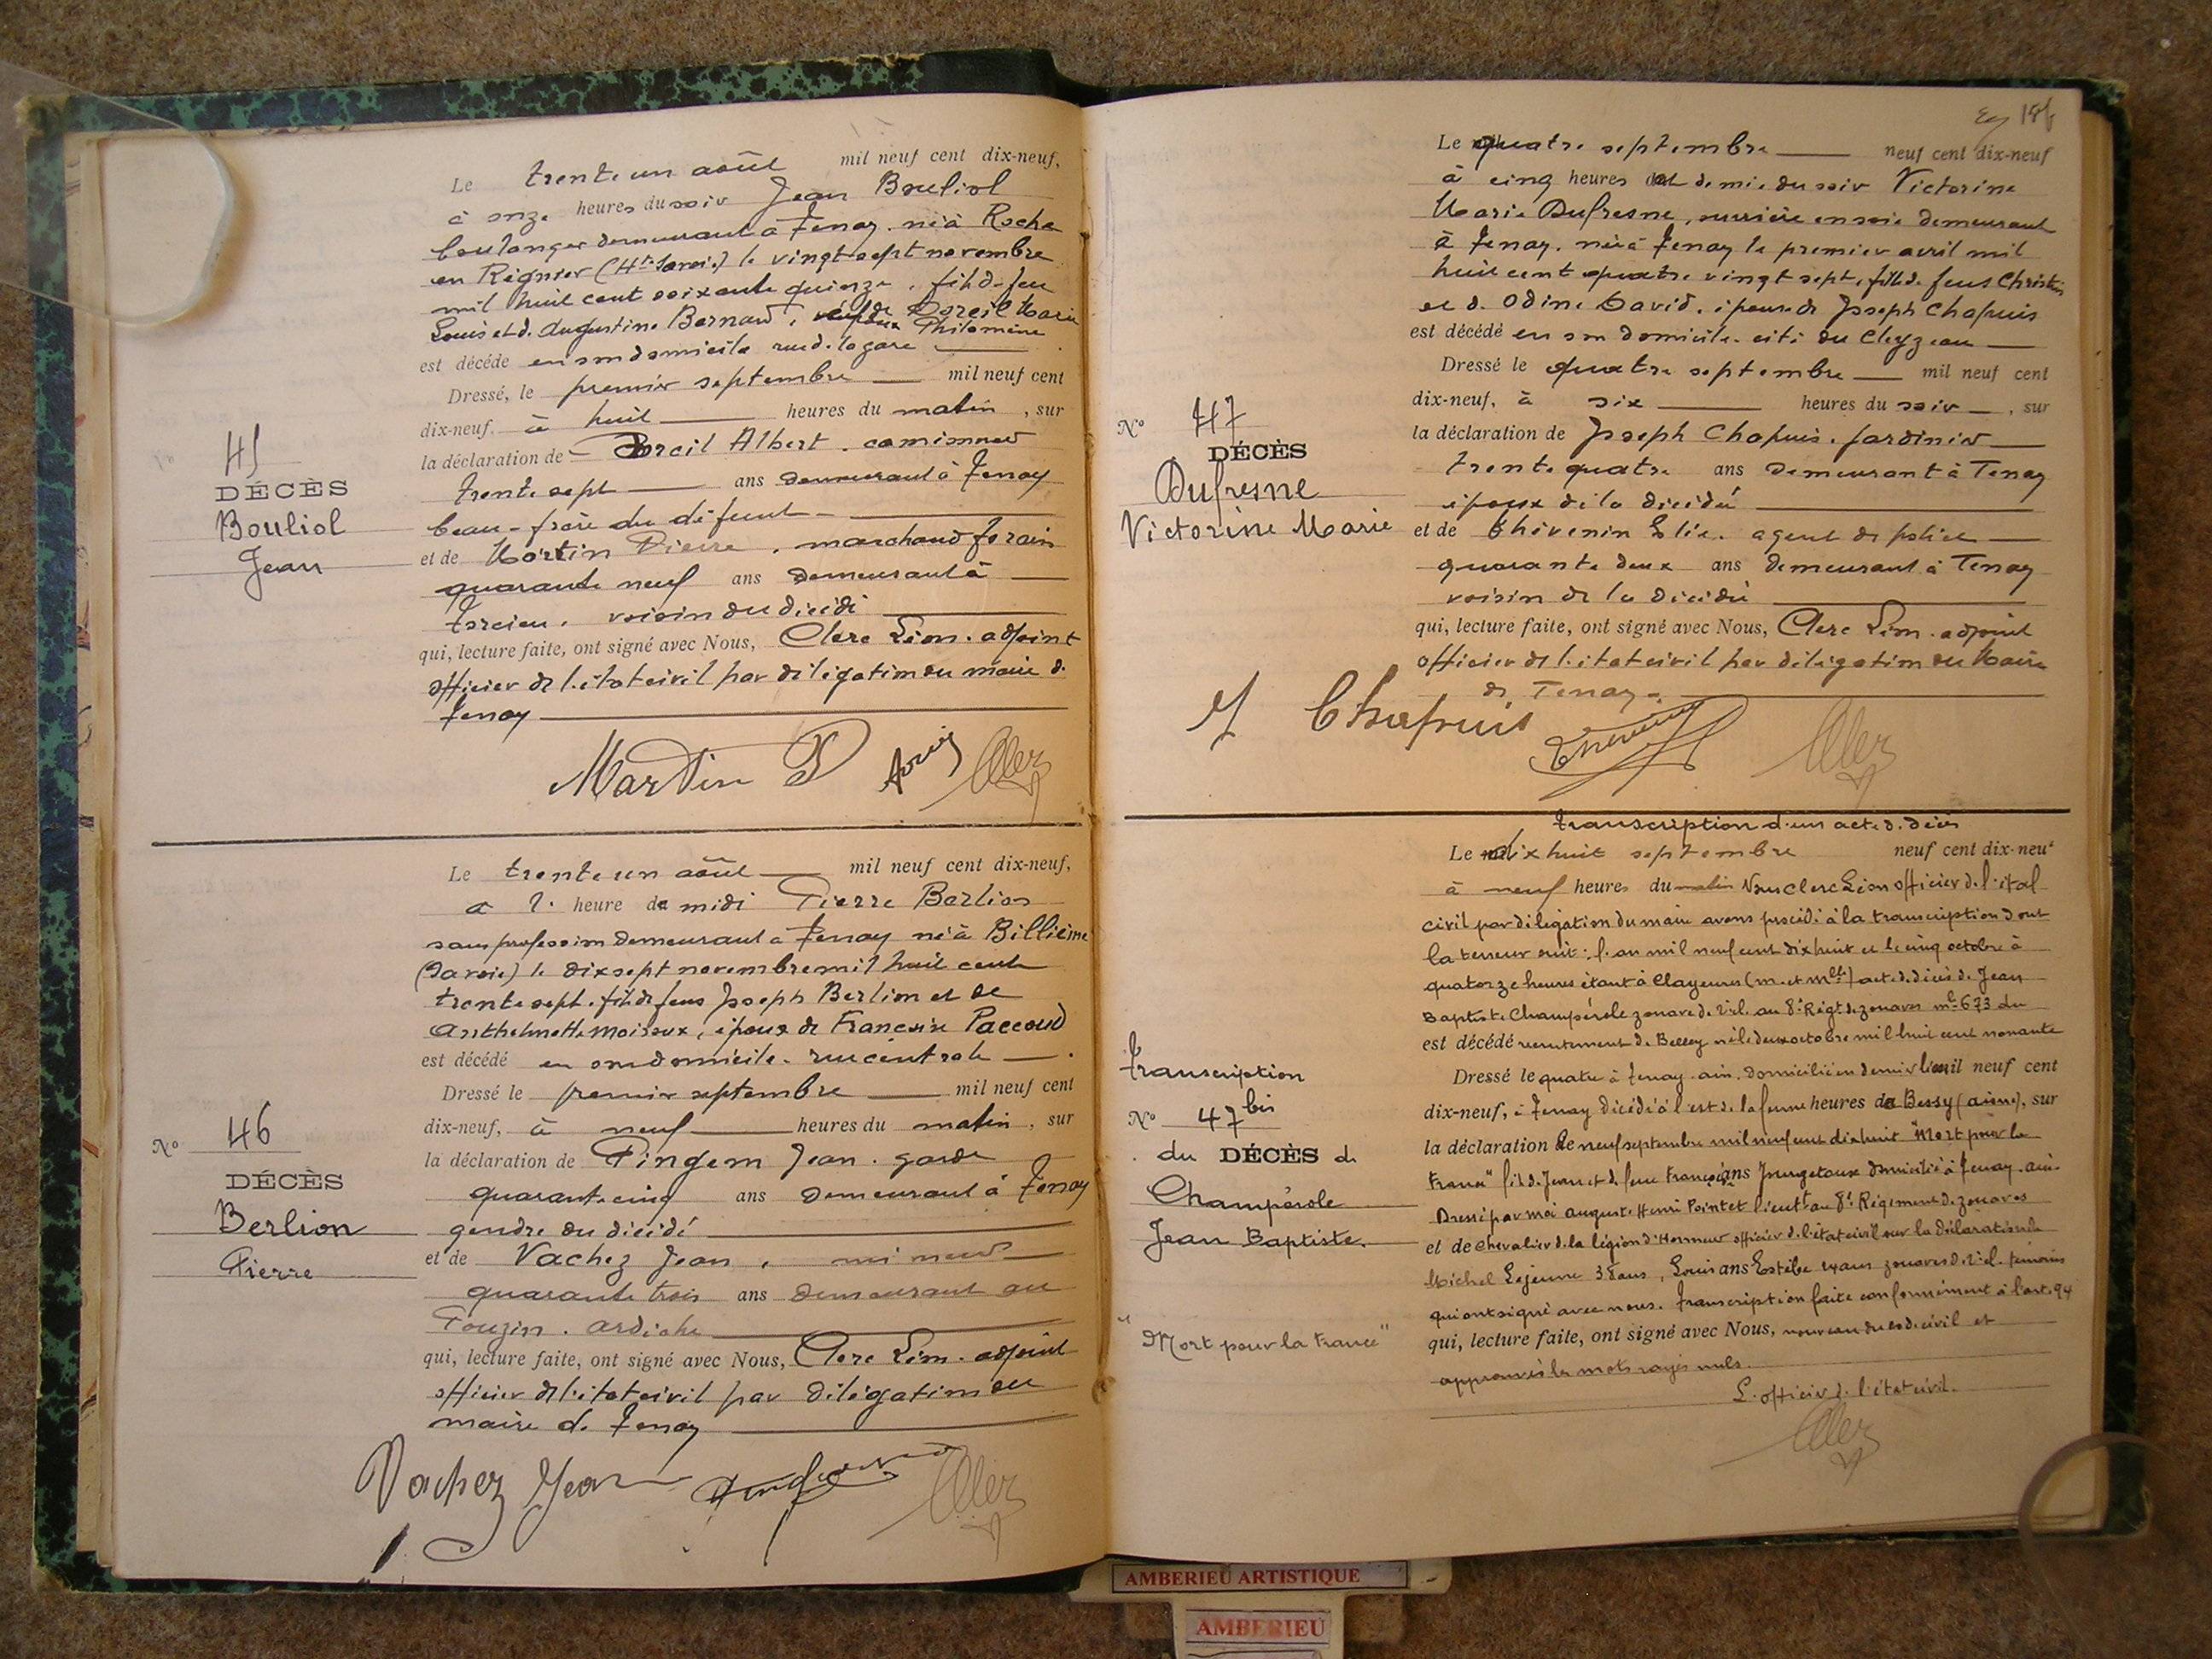 45
DÉCÈS
Bouliol
Jean
Le trente un août mil neuf cent dix-neuf,
à onze heures du soir Jean Bouliol
boulanger demeurant à Tenay. né à Roche
en Régnier (Hte Savoie) le vingt sept novembre
mil huit cent soixante quinze, fils de feu
Louis et de Augustine Bernard, Doreil Marie
Philomène
est décédé en son domicile rue de la gare
Dressé, le premier septembre mil neuf cent
dix-neuf, à huit heures du matin, sur
la déclaration de Doreil Albert. camionneur
trente sept ans demeurant à Tenay
beau-frère du défunt
et de Martin Pierre, marchand forain
quarante neuf ans demeurant à
Torcieu, voisin du décédé
qui, lecture faite, ont signé avec Nous, Clerc Léon. adjoint
officier de l'état civil par délégation du maire de
Tenay
Martin P
N° 46
DÉCÈS
Berlion
Pierre
Le trente un août mil neuf cent dix-neuf,
à heure de midi Pierre Berlion
sans profession demeurant à Tenay né à Billième
(Savoie) le dix sept novembre mil huit cent
trente sept. fils de feus Joseph Berlion et de
Anthelmette Moiroux, époux de Francoise Paccoud
est décédé en son domicile. rue centrale.
Dressé le premier septembre mil neuf cent
dix-neuf, à neuf heures du matin, sur
la déclaration de Pingem Jean. garde
quarante cinq ans demeurant à Tenay
gendre du décédé
et de Vachez Jean, mineur
quarante trois ans demeurant au
Pouzin. Ardèche
qui, lecture faite, ont signé avec Nous, Clerc Léon. adjoint
officier de l'état civil par délégation du
maire de Tenay
Vachez Jean
186
N° 47
DÉCÈS
Dufresne
Victorine Marie
Le quatre septembre neuf cent dix-neuf
à cinq heures et demie du soir Victorine
Marie Dufresne, ouvrière en soie demeurant
à Tenay. née à Tenay le premier avril mil
huit cent quatre vingt sept, fille de feus Christin
et de Odine David, épouse de Joseph Chapuis
est décédé en son domicile. cité du Cleyzeau
Dressé le quatre septembre mil neuf cent
dix-neuf, à six heures du soir, sur
la déclaration de Joseph Chapuis. jardinier
trente quatre ans demeurant à Tenay
époux de la décédée
et de Thévenin Elie. agent de police
quarante deux ans demeurant à Tenay
voisin de la décédée
qui, lecture faite, ont signé avec Nous, Clerc Léon. adjoint
officier de l'état civil par délégation du Maire
de Tenay.
J Chapuis
Transcription
N° 47 bis
du DÉCÈS de
Champérole
Jean Baptiste.
"Mort pour la France"
Transcription d'un acte de décès
Le dix huit septembre neuf cent dix-neuf
à neuf heures du matin Nous Clerc Léon officier de l'état
civil par délégation du maire avons procédé à la transcription dont
la teneur suit: l'an mil neuf cent dix huit et le cinq octobre à
quatorze heures étant à Clayeures (m. et mlle) acte de décès de Jean
Baptiste Champérole zouave de 2e cl. au 8e Régt de zouaves mle 673 du
est décédé recrutement de Belley né le deux octobre mil huit cent nonante
Dressé le quatre à Tenay. ain. domicilié en dernier lieu mil neuf cent
dix-neuf, à Tenay décédé à l'est de la ferme heures de Bessy (aisne), sur
la déclaration de neuf septembre mil neuf cent dix huit "Mort pour la
France" fils de Jean et de feue ans domicilié à Tenay. ain.
Dressé par moi Auguste Henri Pointet lieutt au 8e Régiment de zouaves
et de Chevalier de la légion d'Honneur officier de l'état civil sur la déclaration de
Michel Lejeune ans, Louis ans Estèbe ans zouaves de 2e cl. témoins
qui ont signé avec nous. Transcription faite conformément à l'art. 94
qui, lecture faite, ont signé avec Nous, nouveau du code civil et
approuvés les mots rayés nuls.
L'officier de l'état civil.
AMBERIEU ARTISTIQUE
AMBERIEU